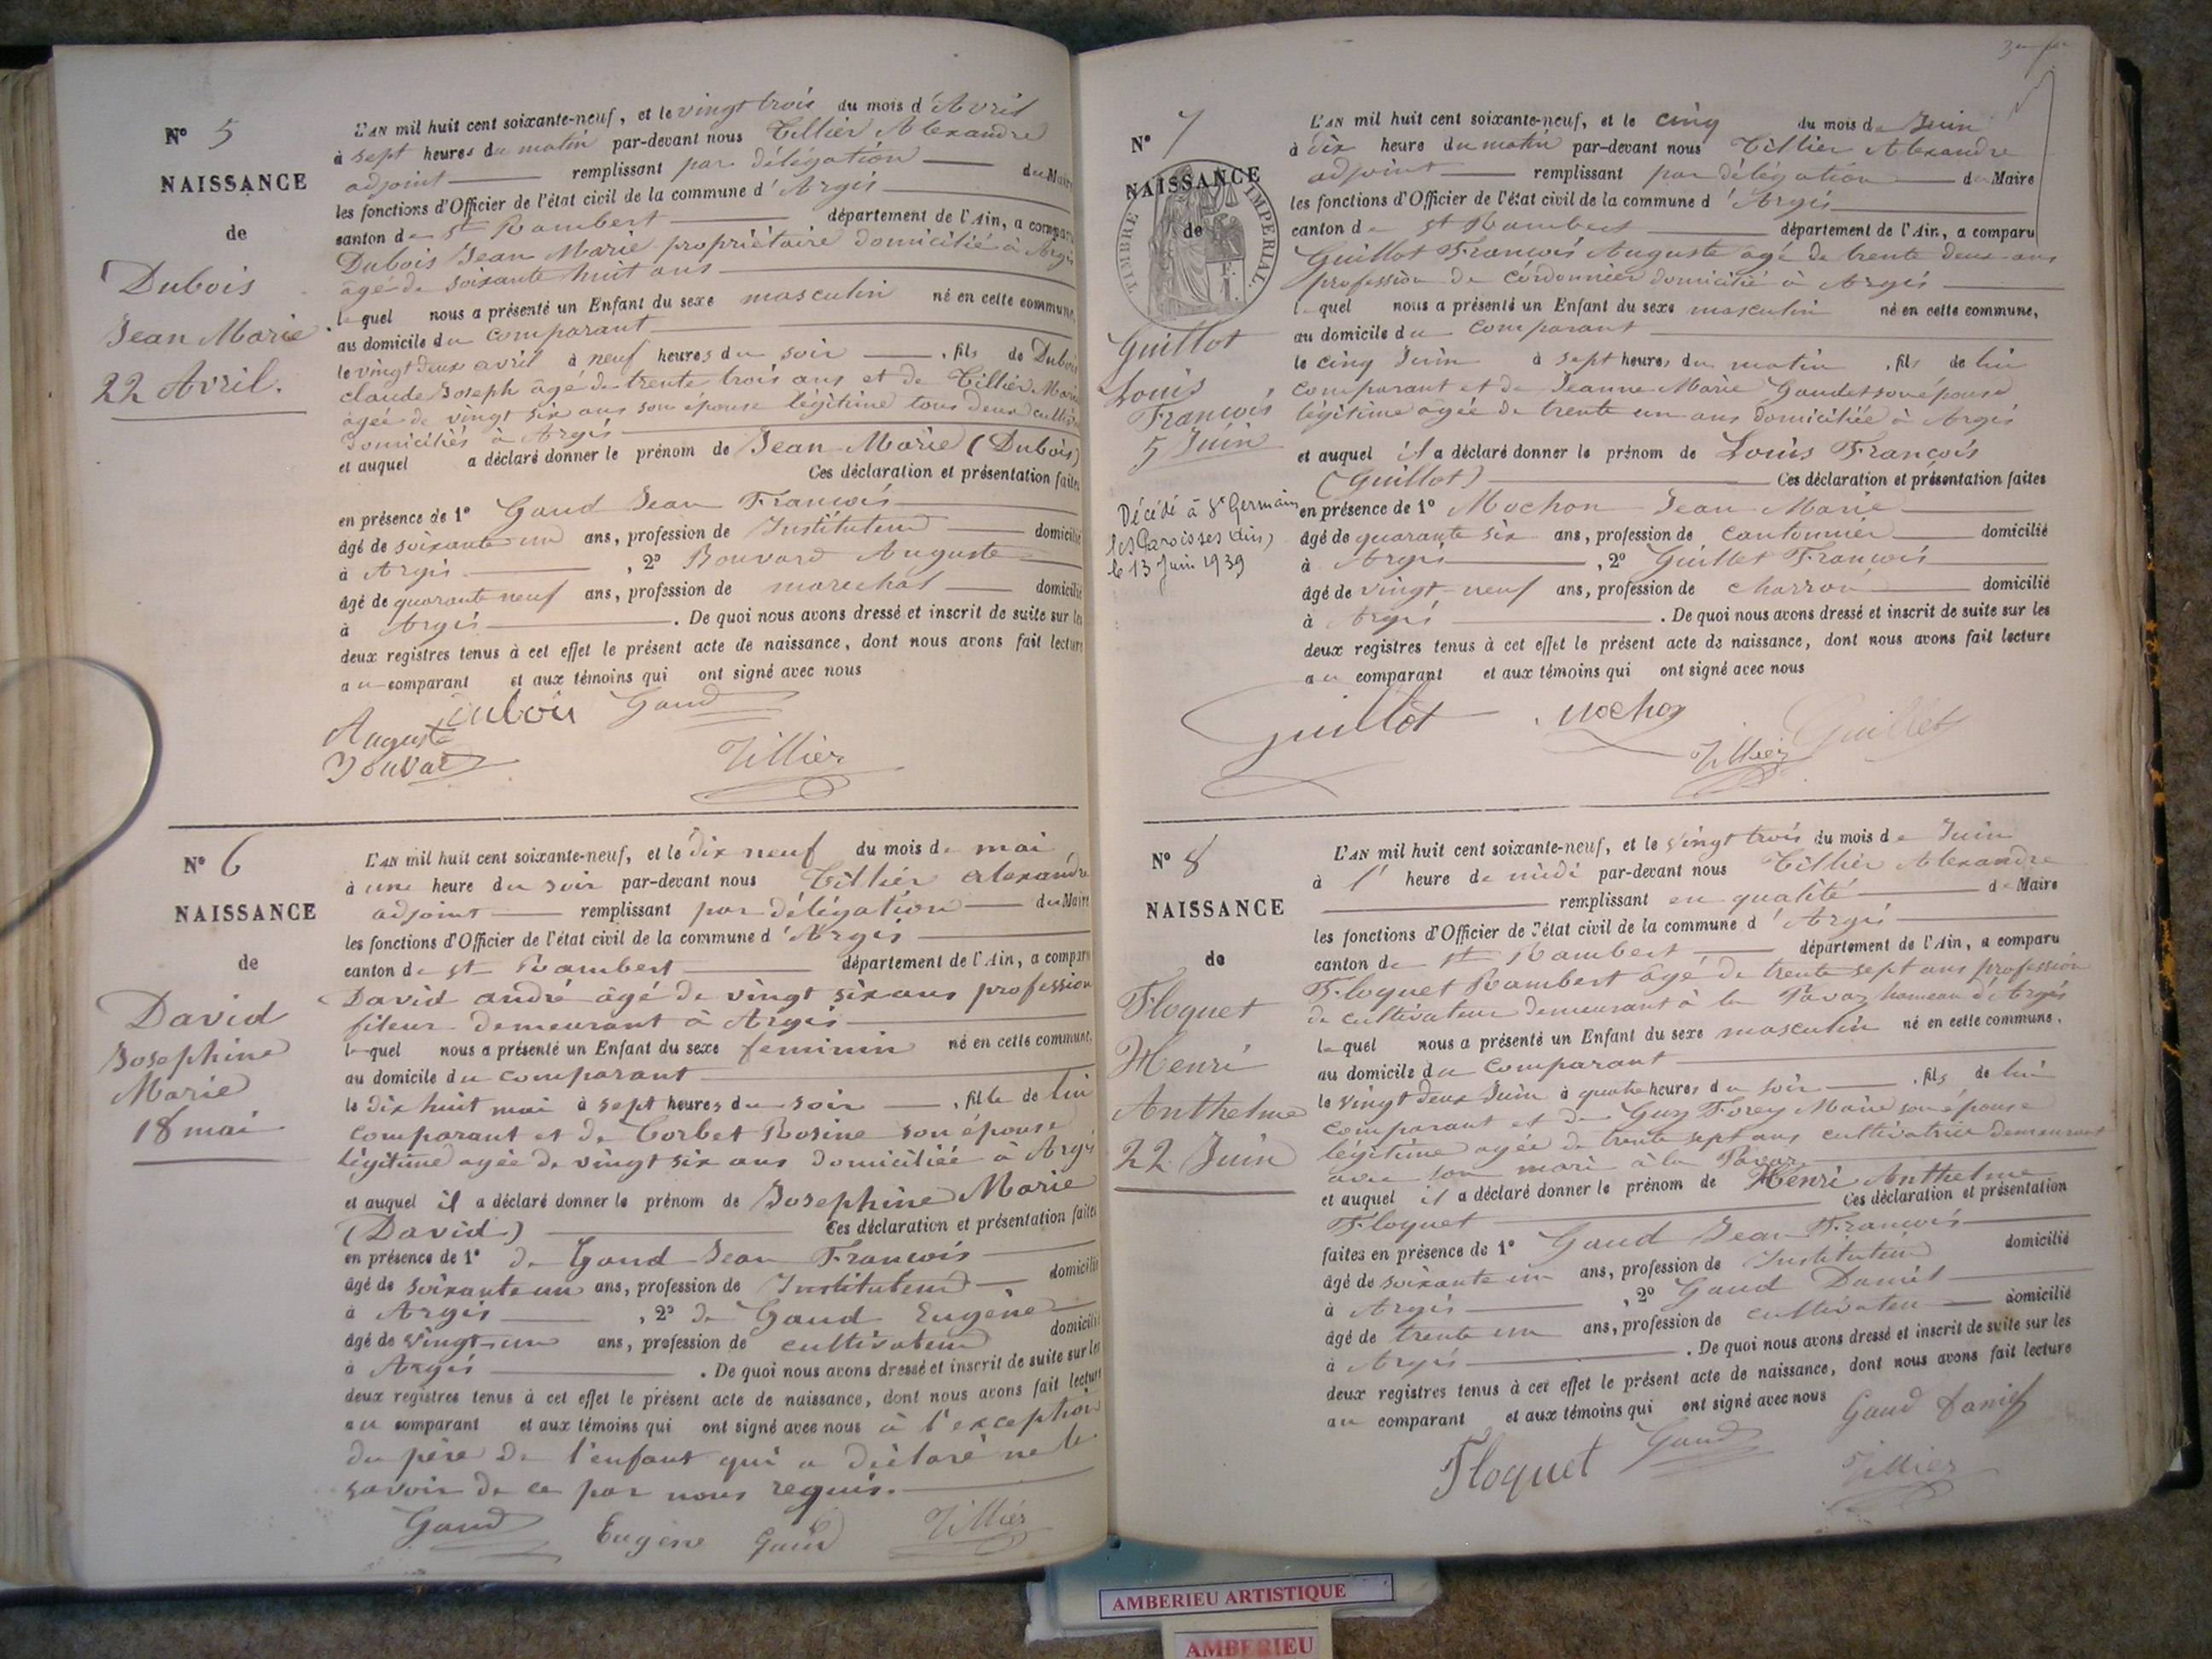 N° 5
NAISSANCE
de
Dubois
Jean Marie
22 Avril.
L'AN mil huit cent soixante-neuf, et le vingt trois du mois d'Avril
à sept heures du matin par-devant nous Tillier Alexandre
adjoint remplissant par délégation du Maire
les fonctions d'Officier de l'état civil de la commune d'Argis
canton de st Rambert département de l'Ain, a comparu
Dubois Jean Marie propriétaire domicilié à Argis
âgé de soixante huit ans
lequel nous a présenté un Enfant du sexe masculin né en cette commune,
au domicile du comparant
le vingt deux avril à neuf heures du soir , fils de Dubois
claude Joseph âgé de trente trois ans et de Tillier Marie
âgée de vingt six ans son épouse légitime tous deux
domiciliés à Argis
et auquel a déclaré donner le prénom de Jean Marie (Dubois)
Ces déclaration et présentation faites
en présence de 1° Gaud Jean François
âgé de soixante un ans, profession de Instituteur domicilié
à Argis , 2° Bouvard Auguste
âgé de quarante neuf ans, profession de marechal domicilié
à Argis . De quoi nous avons dressé et inscrit de suite sur les
deux registres tenus à cet effet le présent acte de naissance, dont nous avons fait lecture
au comparant et aux témoins qui ont signé avec nous
Dubois Gaud
Auguste
Bouvard Tillier
N° 6
NAISSANCE
de
David
Josephine
Marie
18 mai
L'AN mil huit cent soixante-neuf, et le dix neuf du mois de mai
à une heure du soir par-devant nous Tillier Alexandre
adjoint remplissant par délégation du Maire
les fonctions d'Officier de l'état civil de la commune d'Argis
canton de st Rambert département de l'Ain, a comparu
David andré âgé de vingt six ans profession
fileur demeurant à Argis
lequel nous a présenté un Enfant du sexe feminin né en cette commune,
au domicile du comparant
le dix huit mai à sept heures du soir , fille de lui
comparant et de Corbet Rosine son épouse
légitime agée de vingt six ans domiciliée à Argis
et auquel il a déclaré donner le prénom de Josephine Marie
(David) Ces déclaration et présentation faites
en présence de 1° de Gaud Jean François
âgé de soixante un ans, profession de Instituteur domicilié
à Argis , 2° de Gaud Eugène
âgé de vingt-un ans, profession de cultivateur domicilié
à Argis . De quoi nous avons dressé et inscrit de suite sur les
deux registres tenus à cet effet le présent acte de naissance, dont nous avons fait lecture
au comparant et aux témoins qui ont signé avec nous à l'exception
du père de l'enfant qui a déclaré ne le
savoir de ce par nous requis.
Gaud Eugène Gaud Tillier
N° 7
NAISSANCE
de
TIMBRE IMPERIAL
Guillot
Louis
François
5 Juin
Décédé à St Germain
les Paroisses (Ain)
le 13 Juin 1939
L'AN mil huit cent soixante-neuf, et le cinq du mois de Juin
à dix heure du matin par-devant nous Tillier Alexandre
adjoint remplissant par délégation du Maire
les fonctions d'Officier de l'état civil de la commune d'Argis
canton de st Rambert département de l'Ain, a comparu
Guillot François Auguste âgé de trente deux ans
profession de cordonnier domicilié à Argis
lequel nous a présenté un Enfant du sexe masculin né en cette commune,
au domicile du comparant
le cinq Juin à sept heures du matin , fils de lui
comparant et de Jeanne Marie Gaudet son épouse
légitime âgée de trente un ans domiciliée à Argis
et auquel il a déclaré donner le prénom de Louis François
(Guillot) Ces déclaration et présentation faites
en présence de 1° Mochon Jean Marie
âgé de quarante six ans, profession de cantonnier domicilié
à Argis , 2° Guillet François
âgé de vingt-neuf ans, profession de charron domicilié
à Argis . De quoi nous avons dressé et inscrit de suite sur les
deux registres tenus à cet effet le présent acte de naissance, dont nous avons fait lecture
au comparant et aux témoins qui ont signé avec nous
Guillot Mochon
Tillier Guillet
N° 8
NAISSANCE
de
Floquet
Henri
Anthelme
22 Juin
L'AN mil huit cent soixante-neuf, et le vingt trois du mois de Juin
à l' heure de midi par-devant nous Tillier Alexandre
remplissant en qualité de Maire
les fonctions d'Officier de l'état civil de la commune d'Argis
canton de st Rambert département de l'Ain, a comparu
Floquet Rambert âgé de trente sept ans profession
de cultivateur demeurant à la Pavaz hameau d'Argis
lequel nous a présenté un Enfant du sexe masculin né en cette commune,
au domicile du comparant
le vingt deux Juin à quatre heures du soir , fils de lui
comparant et de Guy Forey Marie son épouse
légitime agée de trente sept ans cultivatrice demeurant
avec son mari à la Pavaz
et auquel il a déclaré donner le prénom de Henri Anthelme
Floquet Ces déclaration et présentation
faites en présence de 1° Gaud Jean François
âgé de soixante un ans, profession de Instituteur domicilié
à Argis , 2° Gaud Daniel
âgé de trente un ans, profession de cultivateur domicilié
à Argis . De quoi nous avons dressé et inscrit de suite sur les
deux registres tenus à cet effet le présent acte de naissance, dont nous avons fait lecture
au comparant et aux témoins qui ont signé avec nous Gaud Daniel
Floquet Gaud Tillier
AMBERIEU ARTISTIQUE
AMBERIEU